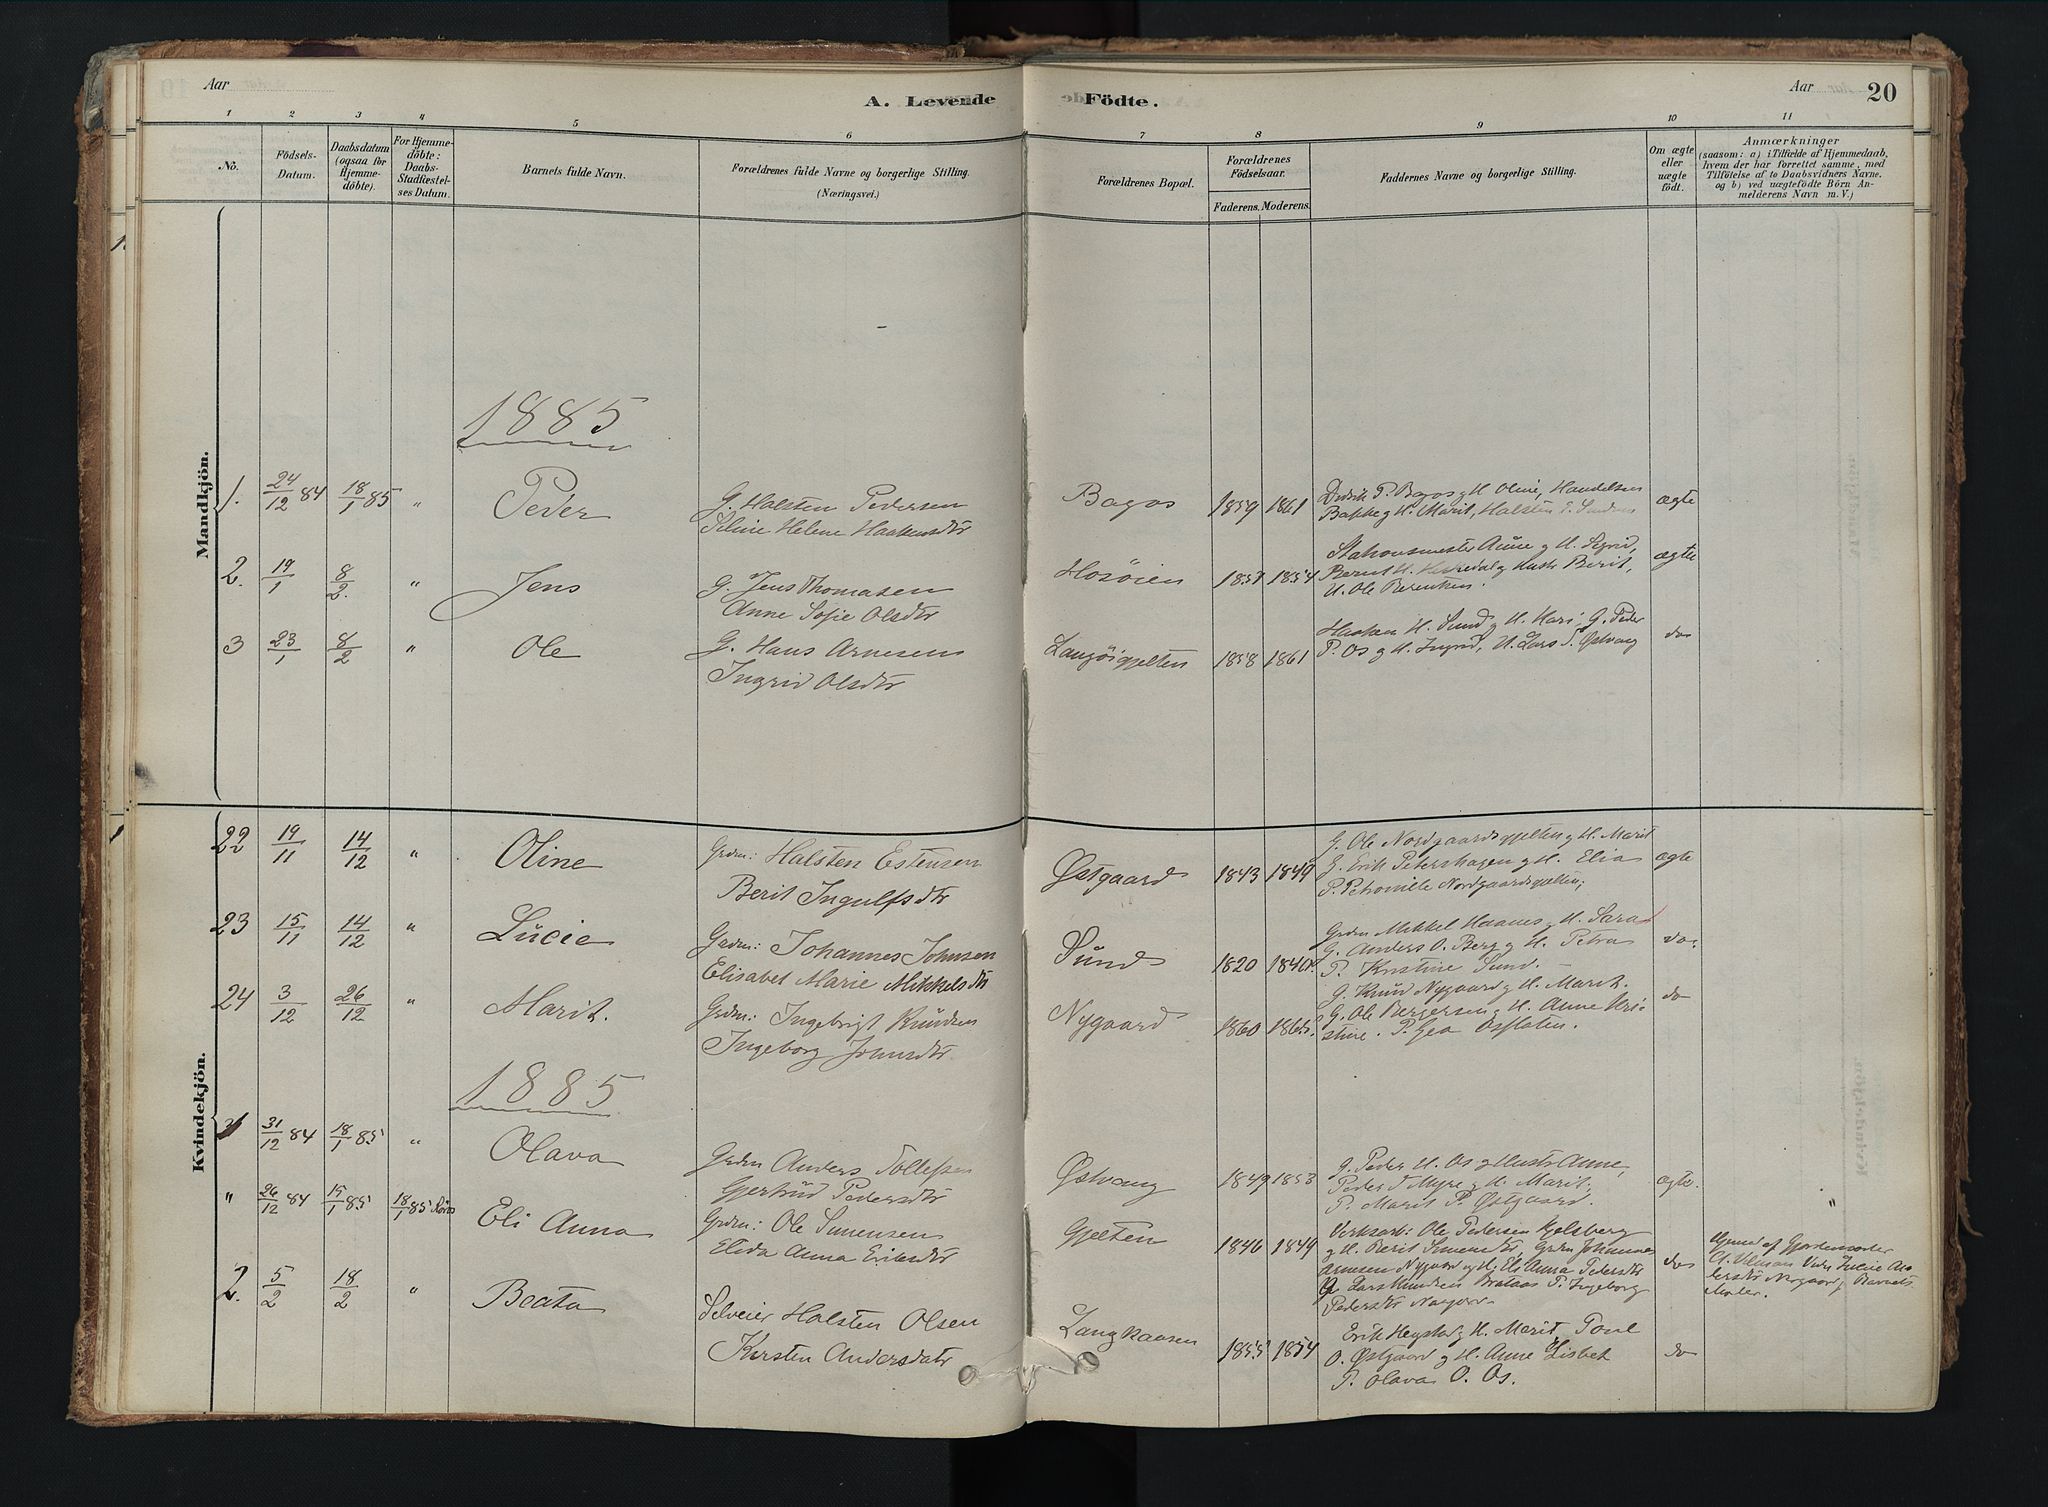 Aar
A. Levende Födte.
Aar 20
1 2 3 4 5 6 7 8 9 10 11
No.
Födsels-
Datum.
Daabsdatum
(ogsaa for
Hjemme-
döbte).
For Hjemme-
döbte:
Daabs-
Stadfæstel-
ses Datum.
Barnets fulde Navn.
Forældrenes fulde Navne og borgerlige Stilling.
(Næringsvei.)
Forældrenes Bopæl.
Forældrenes
Födselsaar.
Faderens. Moderens.
Faddernes Navne og borgerlige Stilling.
Om ægte
eller
uægte
födt.
Anmærkninger
(saasom: a) i Tilfælde af Hjemmedaab,
hvem der har forrettet samme, med
Tilföielse af to Daabsvidners Navne.
og b) ved uægtefödte Börn An-
melderens Navn m. V.)
Mandkjön.
1885
1. 24/12 84 18/1 85 " Peder
G. Halsten Pedersen
Seline Helene Haakensdtr
Bagos 1859 1861
Didrik P. Bagos g H. Oline, Handelsm
Bakke g H. Marit, Halsten
ægte
2. 19/1 8/2. " Jens
G. Jens Thomasen
Anne Sofie Olsdtr
Hosöien 1857 1854
Stationsmester Aune g H. Sigrid,
Bernt H. g Hustr Berit,
U. Ole Berentsen.
ægte
3 23/1 8/2 " Ole
G. Hans Arnesen
Ingrid Olsdtr
Langöigjelten 1858 1861
Haaken H. Sund g H. Kari, G. Peder
P. Os g H. Ingrid, U. Lars T. Østvang
do
Kvindekjön.
22 19/11 14/12 " Oline
Grdm: Halsten Estensen
Berit Ingulfsdtr
Østgaard 1843 1849
G. Ole Nordgaardsgjelten g H. Marit
G. Erik Petershagen g H. Elia
P. Petronille Nordgaardsgjelten;
ægte
23 15/11 14/12 " Lucie
Grdm: Johannes Johnsen
Elisabet Marie Mikkelsdtr
Sund 1820 1840
Grdm Mikkel Haanes g H. Sara
G. Anders O. Berg g H. Petra
P. Kristine Sund.
do.
24 3/12 26/12 " Marit.
Grdm: Ingebrigt Knudsen
Ingeborg Johnsdtr
Nygaard 1860 1865
G. Knud Nygaard g H. Marit.
G. Ole Bergersen g H. Anne Kri-
stine. P. Gea Osfloten.
do
1885
1 31/12 84 18/1 85 " Olava
Grdm Anders Tollefsen
Gjertrud Pedersdtr
Østvang 1849 1853
G. Peder H. Os g Hustr Anne,
Peder T Myre g H. Marit.
P. Marit P. Østgaard.
ægte.
" 26/12 84 15/1 85 18/1 85 Röros Eli Anna
Grdm: Ole Simensen
Elida Anna Eriksdtr
Gjelten 1846 1849
Verksarb: Ole Pedersen Kjelsberg
g H. Berit Simensdtr, Grdm Johannes
Arnesen Nygaard g H. Eli Anna Pedersdtr
G. Lars Knudsen Brataas P. Ingeborg
Pedersdtr
do
"
Hjemd af Gjordemoder
Moder.
2. 5/2 18/2 " Beata
Selveier Halsten Olsen
Kirsten Andersdatr
Langkaasen 1855 1854
Erik Hegstad g H. Marit, Poul
O. Østgaard g H. Anne Lisbet
P. Olava O. Os.
do